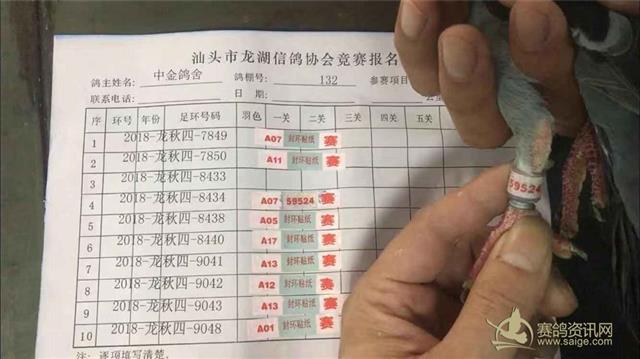 汕头市龙湖信鸽协会竞赛报名
鸽主姓名 中金鸽舍 鸽棚号: 132 参赛项目
联系电话: 日 期
序 环号 年份 足环号码 羽色 一关 二关 三关 四关 五关
1 2018-龙秋四-7849 A07 封环贴纸 赛
2 2018-龙秋四-7850 A11 封环贴纸 赛
3 2018-龙秋四-8433
4 2018-龙秋四-8434 A07 59524 赛
5 2018-龙秋四-8438 A05 封环贴纸 赛
6 2018-龙秋四-8440 A17 封环贴纸 赛
7 2018-龙秋四-9041 A13 封环贴纸 赛
8 2018-龙秋四-9042 A12 封环贴纸 赛
9 2018-龙秋四-9043 A13 封环贴纸 赛
10 2018-龙秋四-9048 A01 封环贴纸 赛
注: 逐项填写清楚,
59524
赛鸽资讯网
www.saige.com